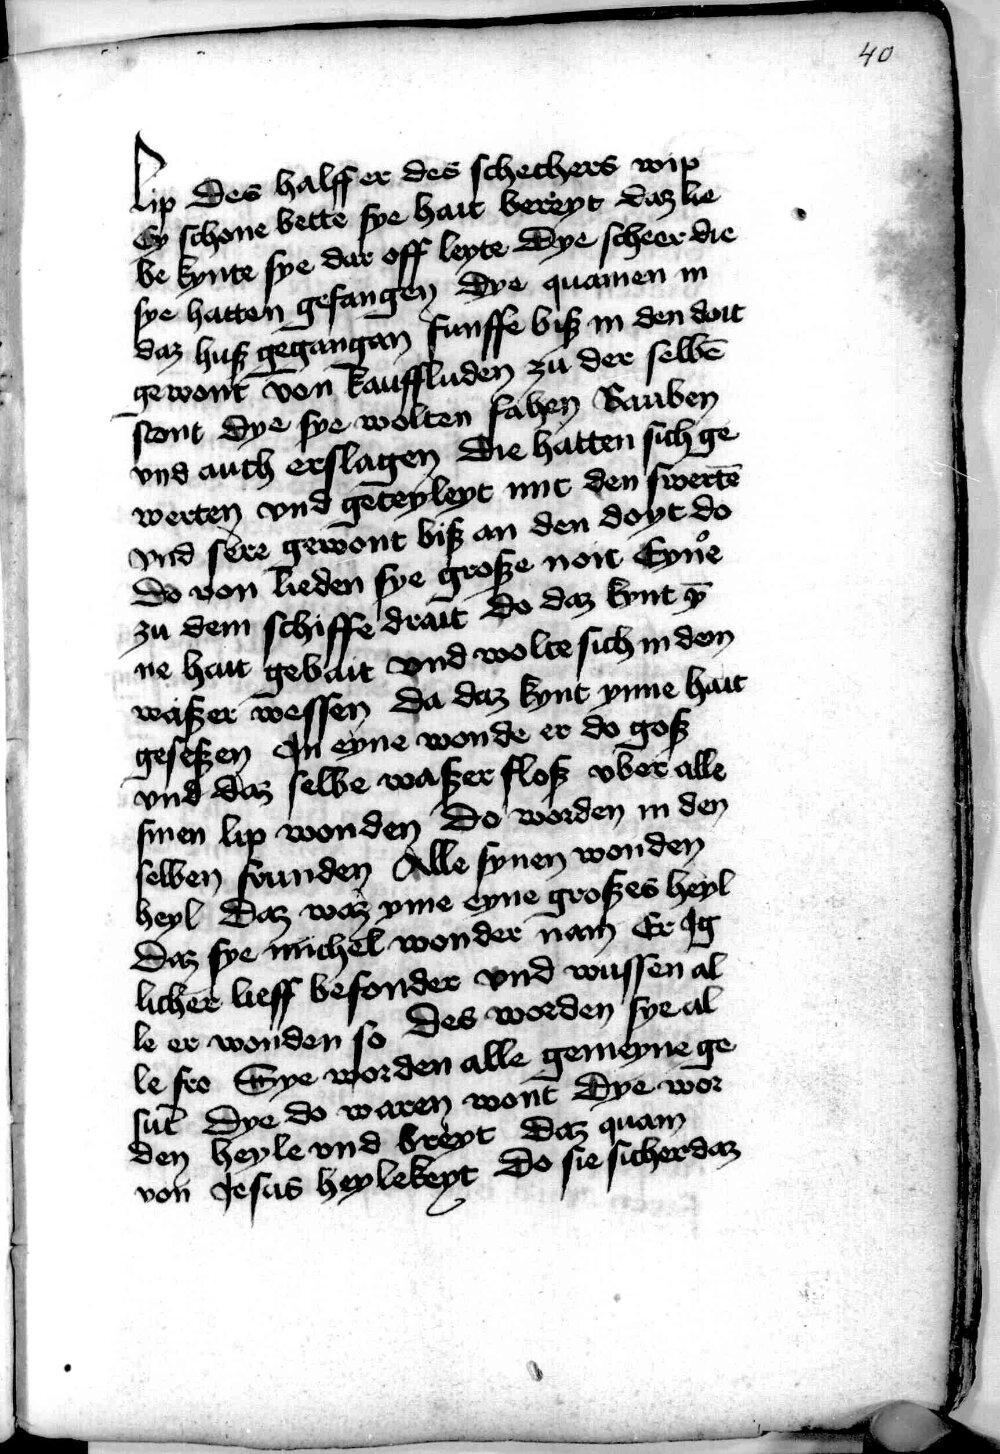 40
lip des halff er des schechers wip
Ey schone bette sye hait bereyt daz lie
be kynte sye dar off leyte Dye scheer die
sye hatten gefangen Dye quamen in
daz huß gegangan funffe biß in den doit
gewont von kauffluden zu der selbē
stont Dye sye wolten fahen Rauben
vnd auch erslagen Die hatten sich ge
werten vnd geteyleyt mit den swertē
vnd sere gewont biß an den doyt do
Do von lieden sye große noit Eyn
zu dem schiffe drait do daz kynt y̅
ne hait gebait vnd wolte sich in dem
waßer wessen da daz kynt ynne hait
geseßen In eyne wonde er do goß
vnd daz selbe waßer floß vber alle
sinen lip wonden Do worden in den
selben stunden Alle synen wonden
heyl Daz waz yme eyne großes heyl
Daz sye michel wonder nam Er Ig
licher lieff besonder vnd wussen al
le er wonden so Des worden sye al
le fro Sye worden alle gemeyne ge
sūt Dye do waren wont Dye wor
den heyle vnd breyt Daz quam
von Jesus heylekeyt Do sie sicher daz